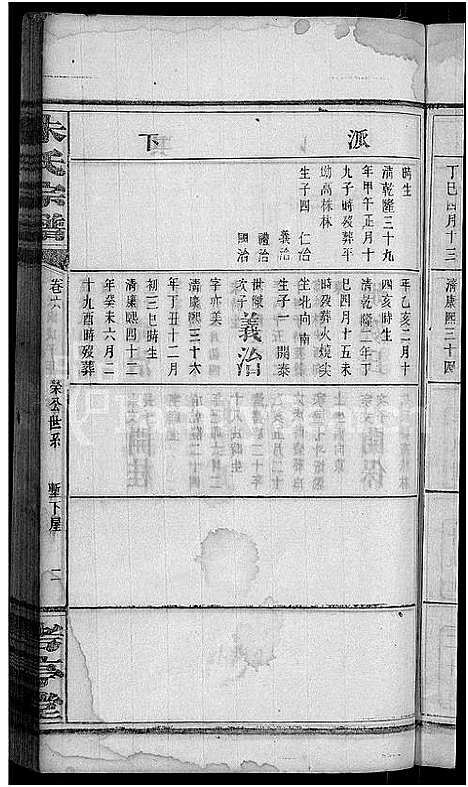 丁巳四月十三
清康熙三十四
派
下
時生
清乾隆三十九
年甲午正月十
九子時歿葬平
坳高株林
生子四 仁治
義治
禮治
國治
年乙亥二月十
四亥時生
清乾隆二年丁
巳四月十五未
時歿葬火燒尖
坐北向南
生子一 開泰
世傑
次子 義治
字亦美
清康熙三十六
年丁丑十二月
初三巳時生
清康熙四十二
年癸未六月二
十九酉時歿葬
朱氏宗譜
卷六
榮公世系
塹下屋
二